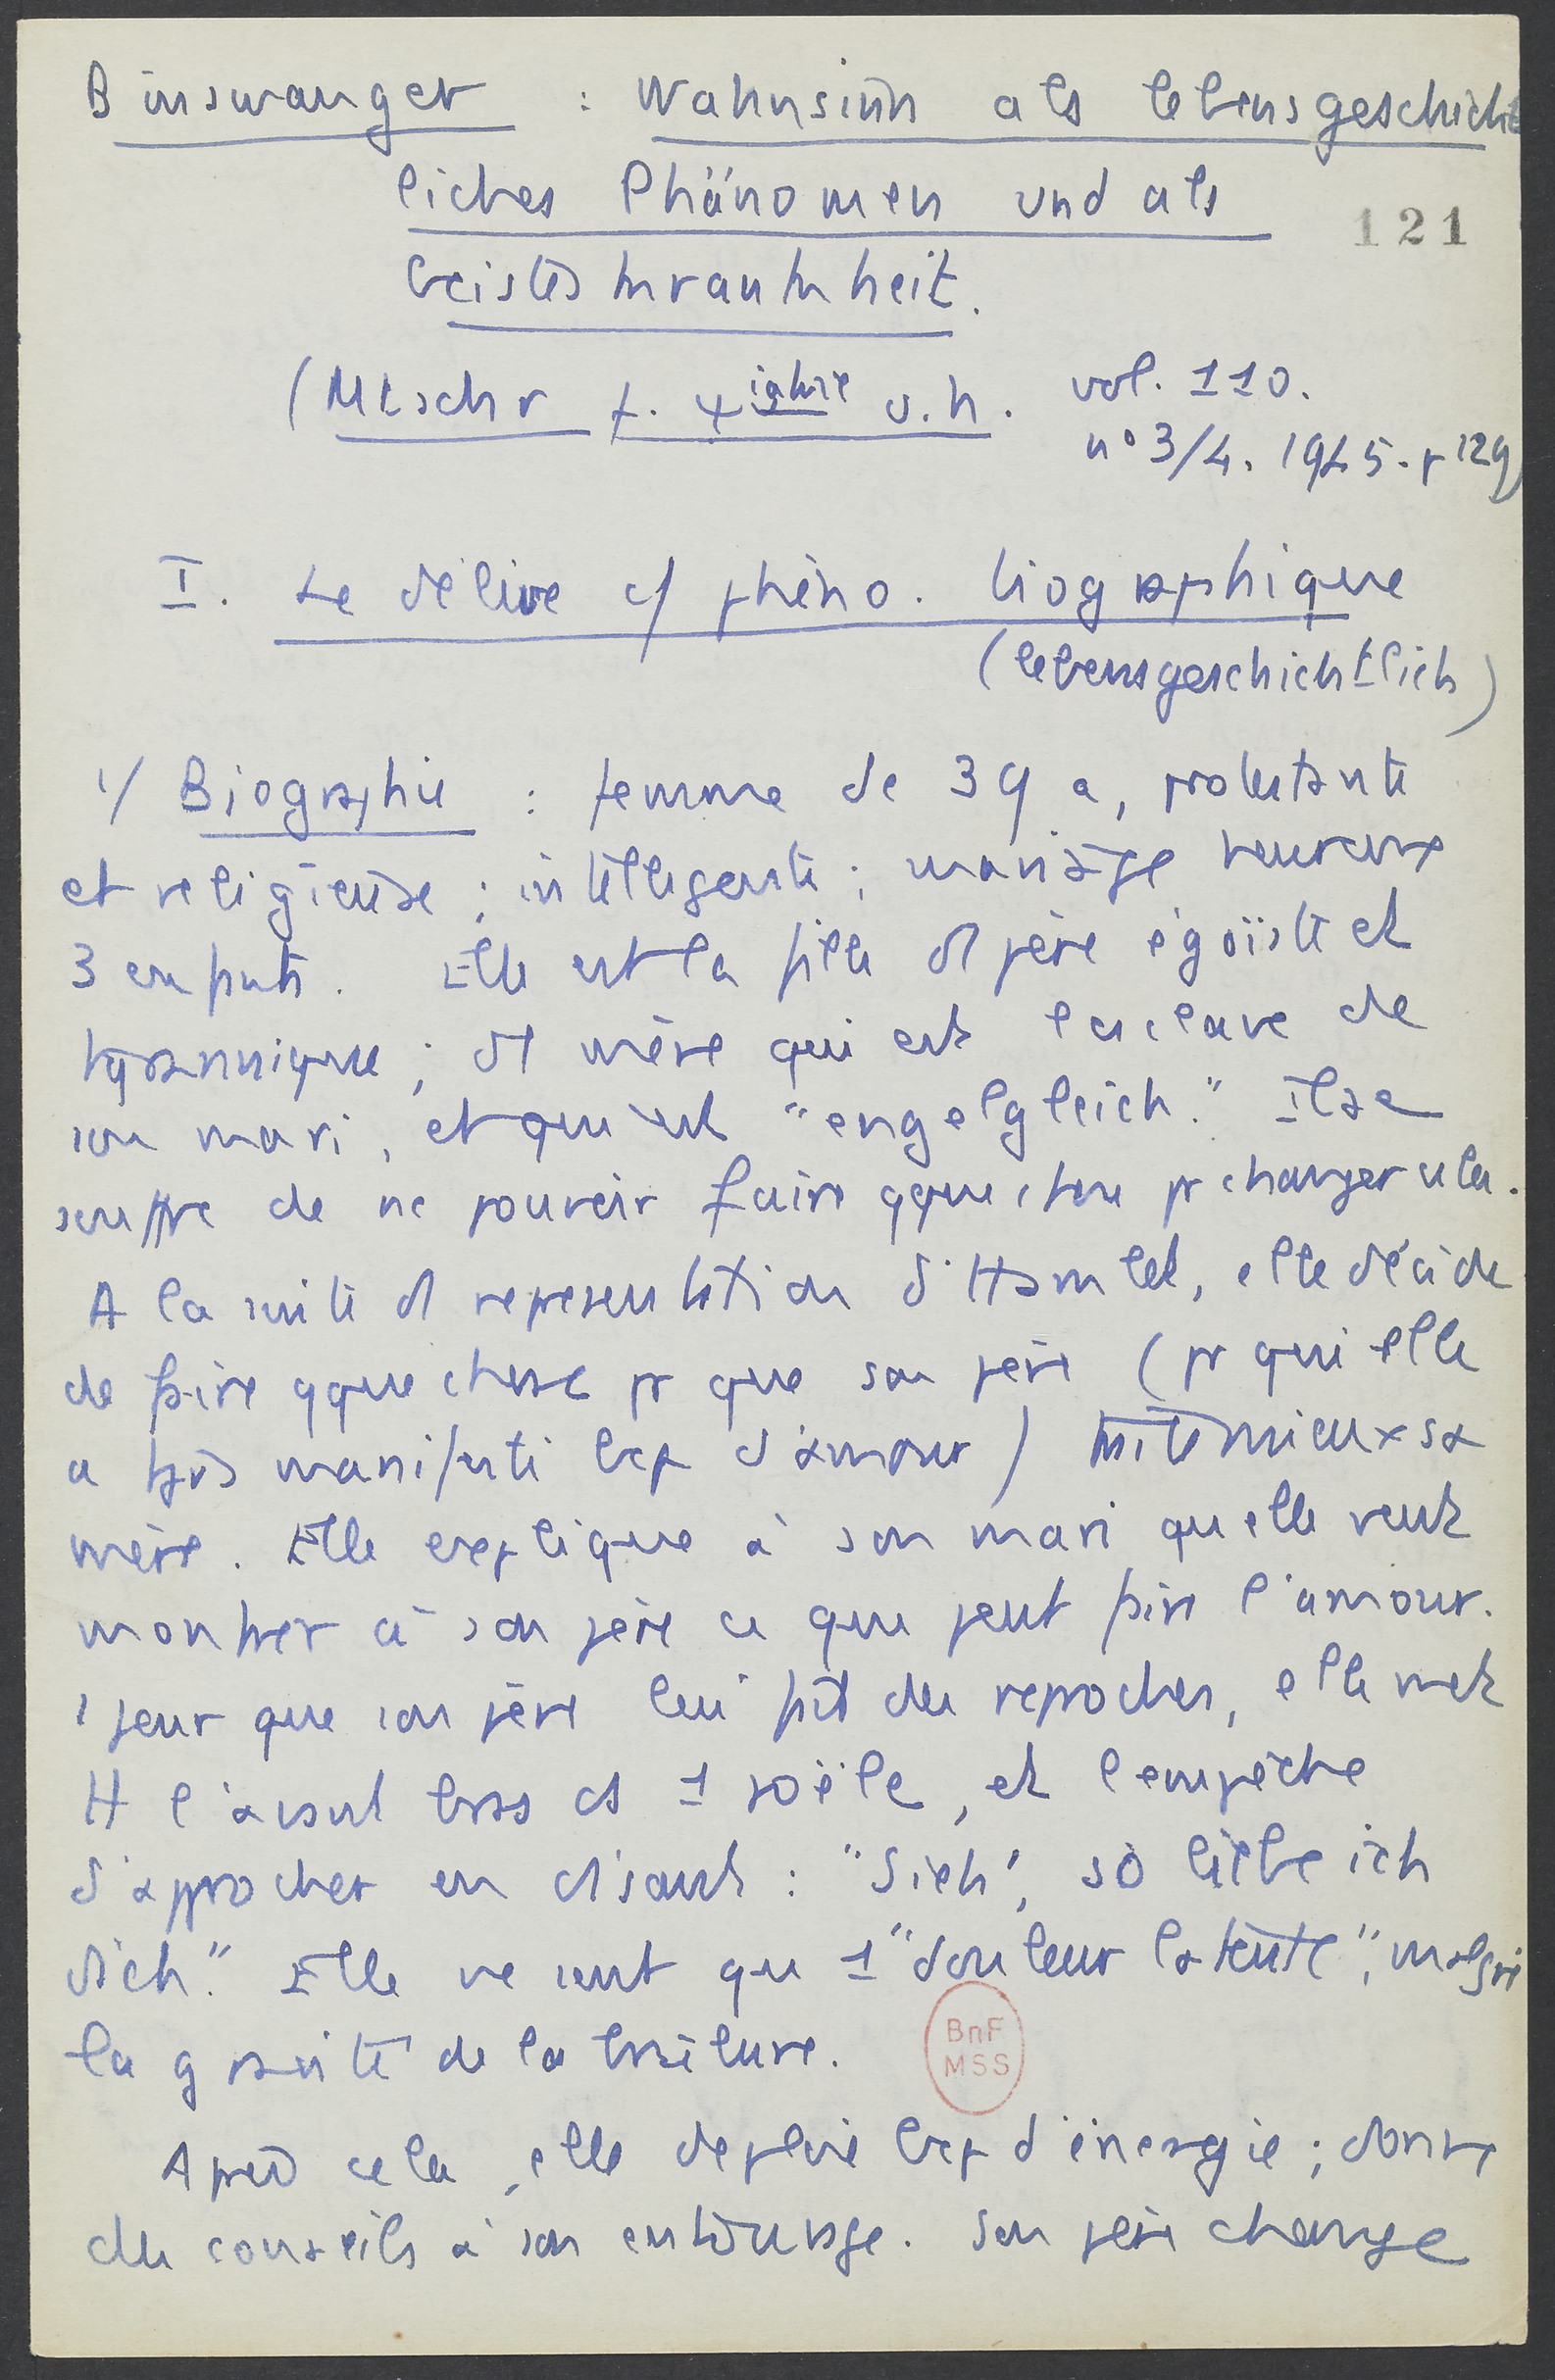 Binswanger : Wahnsinn als lebensgeschicht
liches Phänomen und als
Geisteskrankheit.
121
(Mtschr f. ψiatrie u. N. vol. 110.
n° 3/4. 1945. p 129)
I. Le délire c/ phéno. biographique
(lebensgeschichtlich)
1/ Biographie : femme de 39 a, protestante
et religieuse ; intelligente ; mariage heureux
3 enfants. Elle est la fille d1 père égoïste et
tyrannique ; d1 mère qui est l'esclave de
son mari, et qui est "engelgleich." Ilse
souffre de ne pouvoir faire qque chose pr changer cela.
A la suite d1 representation d'Hamlet, elle décide
de faire qque chose pr que son père (pr qui elle
a tjrs manifesté bcp d'amour) traite mieux sa
mère. Elle explique à son mari qu'elle veut
montrer à son père ce que peut faire l'amour.
1 jour que son père lui fait des reproches, elle met
tt l'avant bras ds 1 poële, et l'empêche
d'approcher en disant : "Sieh', so liebe ich
dich." Elle ne sent qu 1 "douleur latente", malgré
la gravité de la brûlure.
BnF
MSS
Après cela, elle deploie bcp d'énergie ; donne
des conseils à son entourage. Son père change